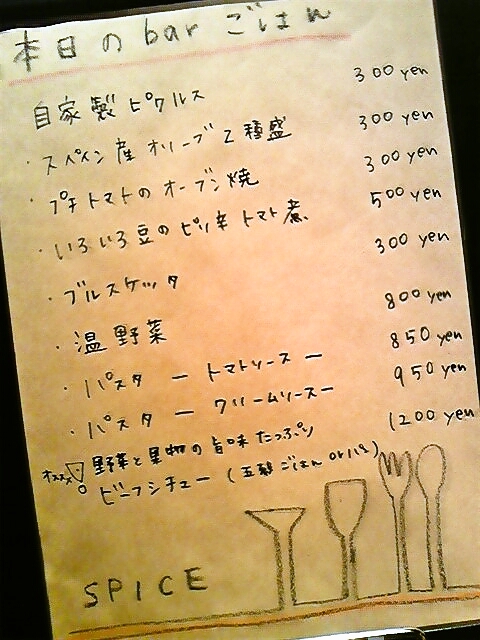 本日の bar ごはん
自家製ピクルス 300 yen
・スペイン産オリーブ2種盛 300 yen
・プチトマトのオーブン焼 300 yen
・いろいろ豆のピリ辛トマト煮 500 yen
・ブルスケッタ 300 yen
・温野菜 800 yen
・パスタ ー トマトソース ー 850 yen
・パスタ ー クリームソース ー 950 yen
オススメ! 野菜と果物の旨味たっぷり
ビーフシチュー (五穀ごはん or パン) 1200 yen
SPICE